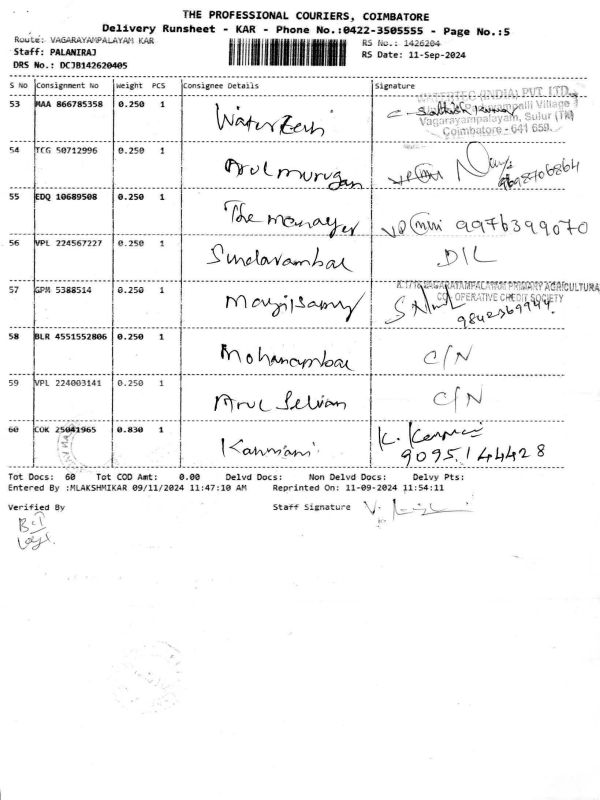 THE PROFESSIONAL COURIERS, COIMBATORE
Delivery Runsheet - KAR - Phone No.:0422-3505555 - Page No.:5
Route: VAGARAYAMPALAYAM KAR
RS No.: 1426204
Staff: PALANIRAJ
RS Date: 11-Sep-2024
DRS No.: DCJB142620405
S No Consignment No Weight PCS Consignee Details Signature
53 MAA 866785358 0.250 1 Watertech
WATERTEC (INDIA) PVT. LTD.,
Village
Vagarayampalayam, Sulur (TK)
Coimbatore - 641 659.
54 TCG 50712996 0.250 1 Arul murugan
55 EDQ 10689508 0.250 1 The manager 9976399070
56 VPL 224567227 0.250 1 Sundarambal D/L
57 GPM 5388514 0.250 1
VAGARAYAMPALAYAM PRIMARY AGRICULTURA
CO-OPERATIVE CREDIT SOCIETY
9842369944.
58 BLR 4551552806 0.250 1 Mohanambal C/N
59 VPL 224003141 0.250 1 Arul Selvan C/N
60 COK 25041965 0.830 1 Kanmani K. Kanmani
9095144428
Tot Docs: 60 Tot COD Amt: 0.00 Delvd Docs: Non Delvd Docs: Delvy Pts:
Entered By :MLAKSHMIKAR 09/11/2024 11:47:10 AM Reprinted On: 11-09-2024 11:54:11
Verified By Staff Signature